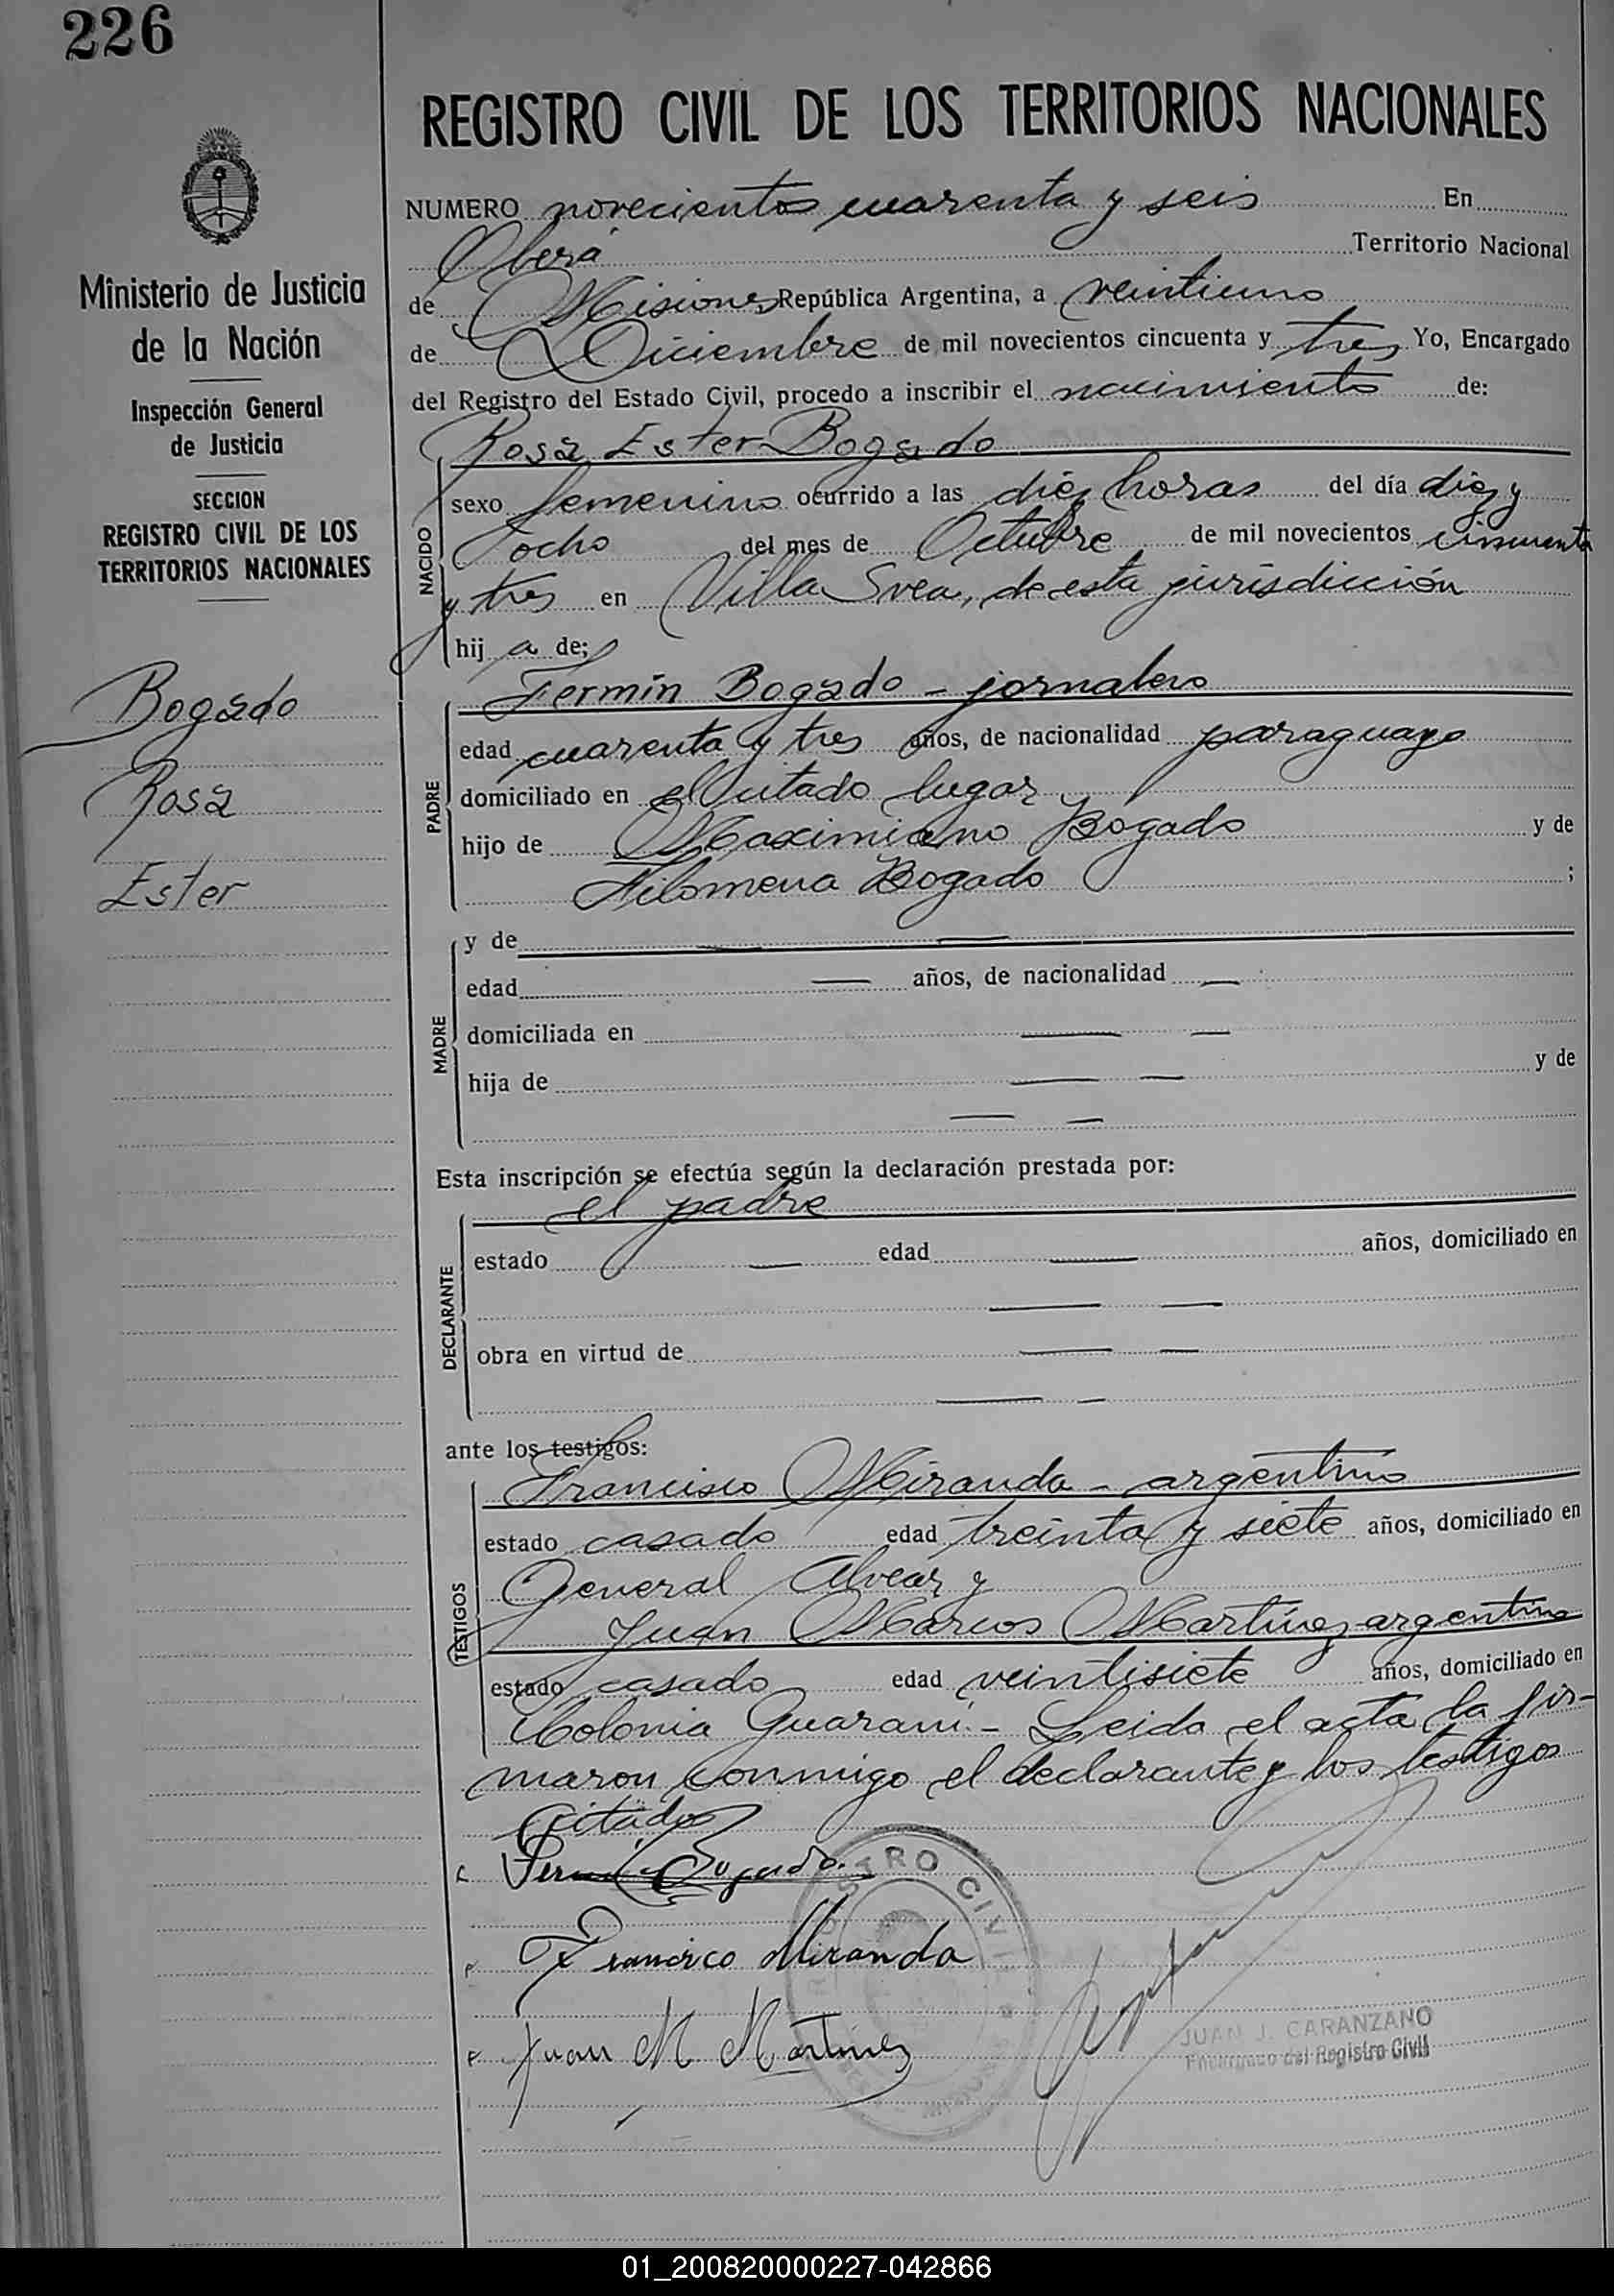 226
REGISTRO CIVIL DE LOS TERRITORIOS NACIONALES
Ministerio de Justicia
de la Nación
Inspección General
de Justicia
SECCION
REGISTRO CIVIL DE LOS
TERRITORIOS NACIONALES
Bogado
Rosa
Ester
NUMERO novecientos cuarenta y seis En
Oberá Territorio Nacional
de Misiones República Argentina, a veintiuno
de Diciembre de mil novecientos cincuenta y tres Yo, Encargado
del Registro del Estado Civil, procedo a inscribir el nacimiento de:
Rosa Ester Bogado
NACIDO
sexo femenino ocurrido a las diez horas del día diez y
ocho del mes de Octubre de mil novecientos cincuenta
y tres en Villa Svea, de esta jurisdicción
hij a de:
PADRE
Fermín Bogado - jornalero
edad cuarenta y tres años, de nacionalidad paraguayo
domiciliado en el citado lugar
hijo de Maximiano Bogado y de
Filomena Bogado ;
MADRE
y de
edad años, de nacionalidad
domiciliada en
hija de y de
Esta inscripción se efectúa según la declaración prestada por:
el padre
DECLARANTE
estado edad años, domiciliado en
obra en virtud de
ante los testigos:
TESTIGOS
Francisco Miranda - argentino
estado casado edad treinta y siete años, domiciliado en
General Alvear y
Juan Marcos Martínez argentino
estado casado edad veintisiete años, domiciliado en
Colonia Guaraní.- Leida el acta la fir-
maron conmigo el declarante y los testigos
citados
Fermin Bogado.
Francisco Miranda
Juan M Martinez
REGISTRO CIVIL
JUAN J. CARANZANO
Encargado del Registro Civil
01_200820000227-042866